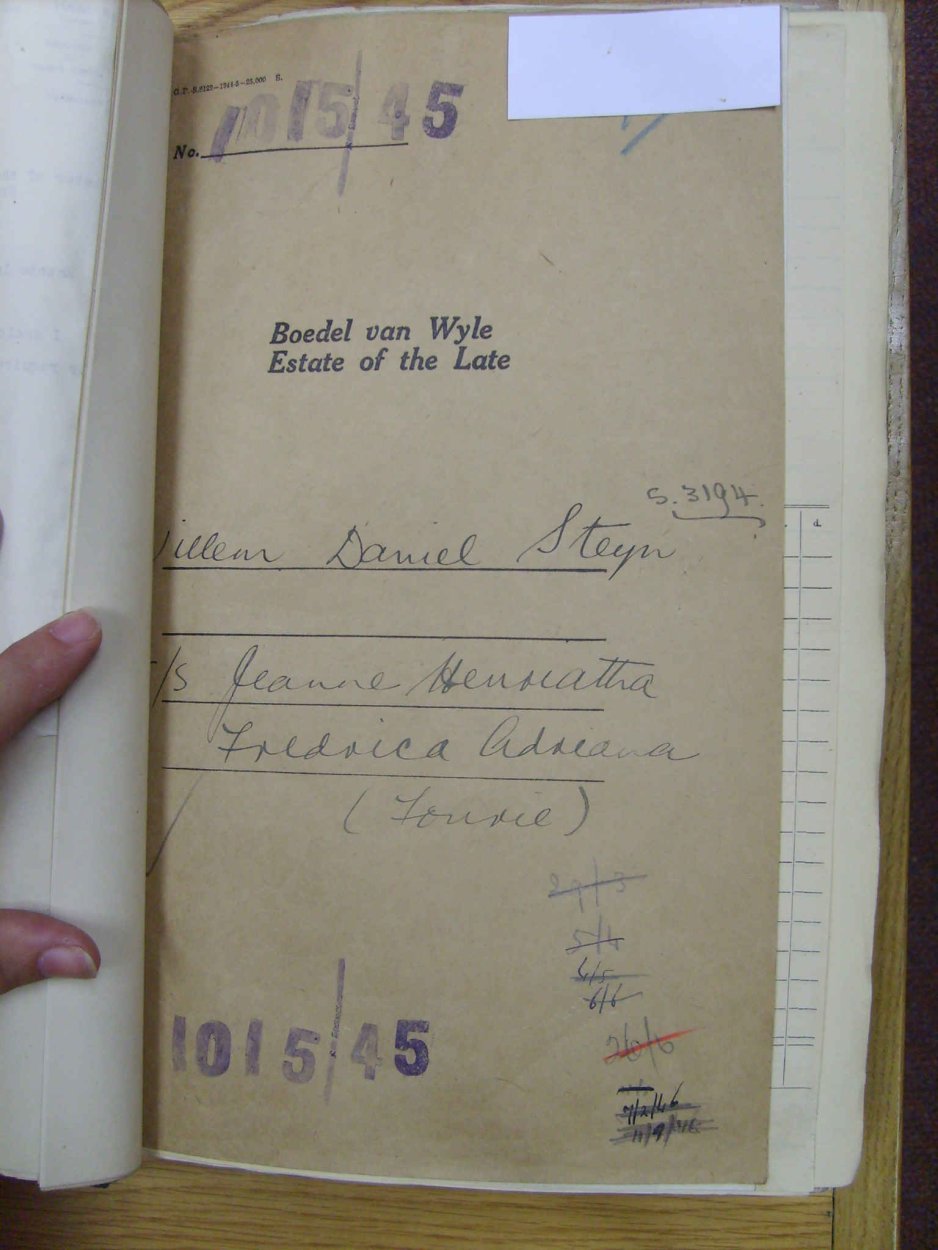 G.P.-S.8129—1944-5—25,000 S.
1015/45
No.
Boedel van Wyle
Estate of the Late
S. 3194.
illem Daniel Steyn
/s Jeanne Henriatha
Fredrica Adriana
(Fourie)
29/3
5/4
4/5
6/6
26/6
7/2/46
11/9/46
1015/45